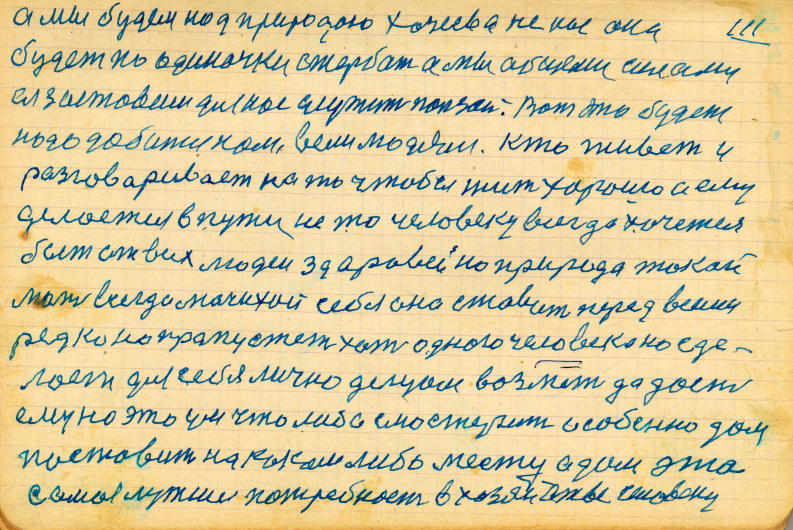 а мы будем над природаю хозяева не нас она III
будет по одиночки стербат а мы общеми силами
ея заставеми для нас служит ползой. Вот это будет
надо добытинам, вели людям. Кто живет и
разговаривает на то чтобы жит хорошо а ему
делоется в пути не то человеку всегда хочется
быт от всих людей здаравей но природа такай
мат всегда мачихой себя она ставит перед всеми
редко на прапустет хот одного человека но сде-
лоети для себя лично делцом возмет да даст
ему на это ум что либо смостерит особенно дом
поставит на каком либо месту а дом эта
самая лутшие потребност в хозяйстве человеку